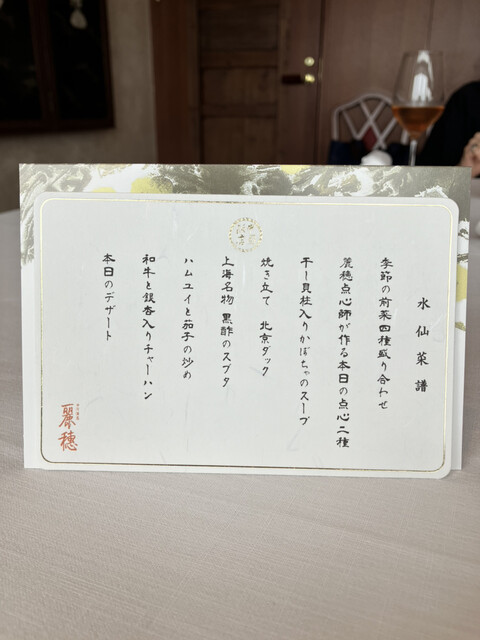 水仙菜譜
季節の前菜四種盛り合わせ
麗穂点心師が作る本日の点心二種
干し貝柱入りかぼちゃのスープ
焼き立て 北京ダック
上海名物 黒酢のスブタ
ハムユイと茄子の炒め
和牛と銀杏入りチャーハン
本日のデザート
麗穂